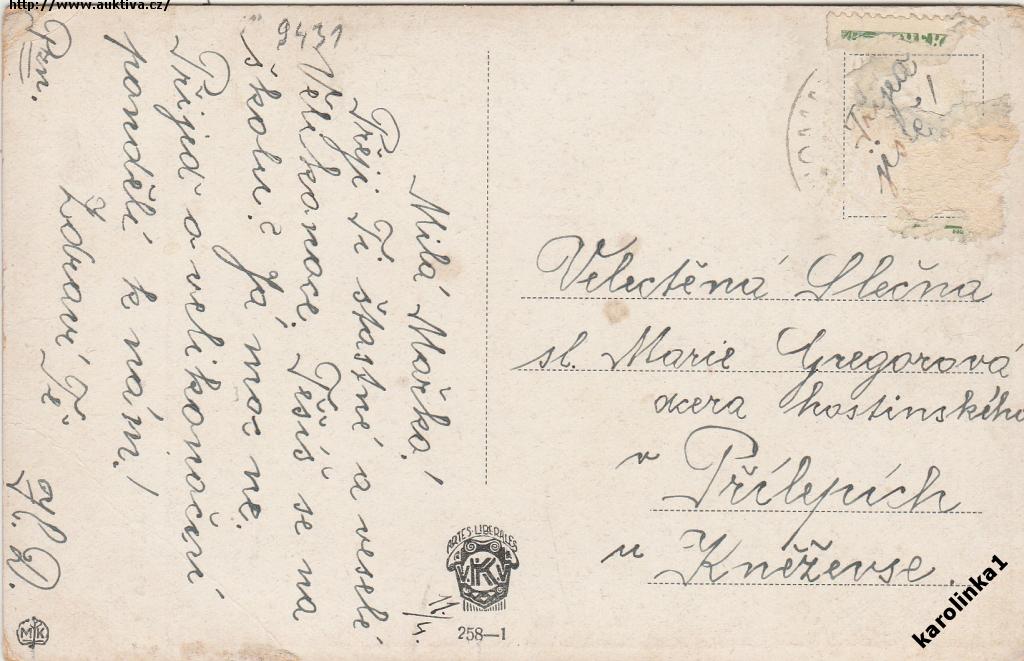 http://www.auktiva.cz/
9431
Milá Mařko!
Přeji Ti šťastné a veselé
Velikonoce. Těšíš se na
školu? Já moc ne.
Přijď o velikonoční
pondělí k nám!
Zdraví Tě
Pzn.
Velectěná Slečna
sl. Marie Gregorová
dcera hostinského
v Přílepích
u Kněževse.
ARTES·LIBERALES
V.K.K.V
258–1
MK
karolinka1